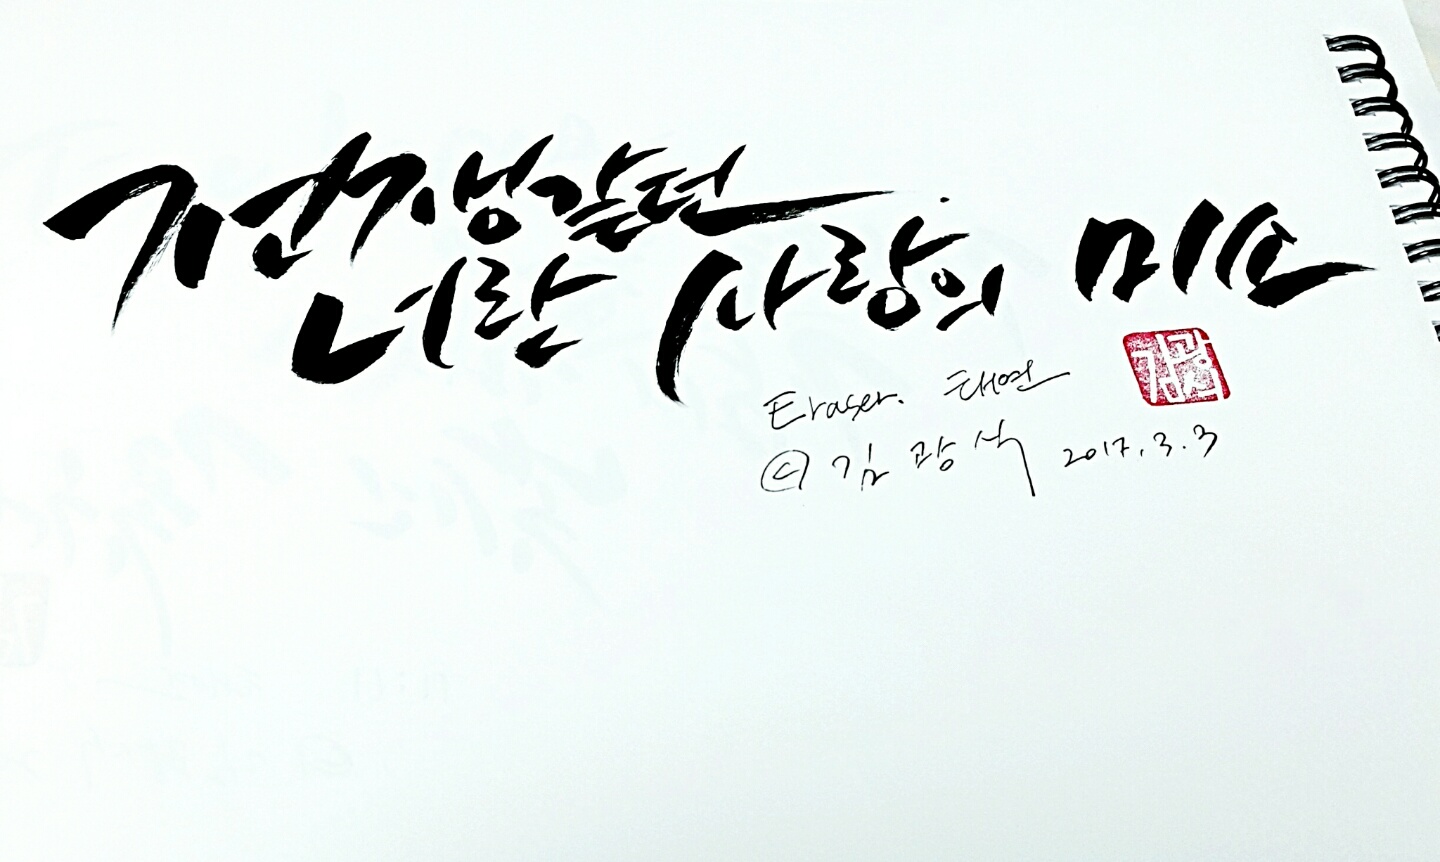 전쟁같던
너란 사랑의 미소
Eraser. 태연
© 김광석 2017.3.3
김광석